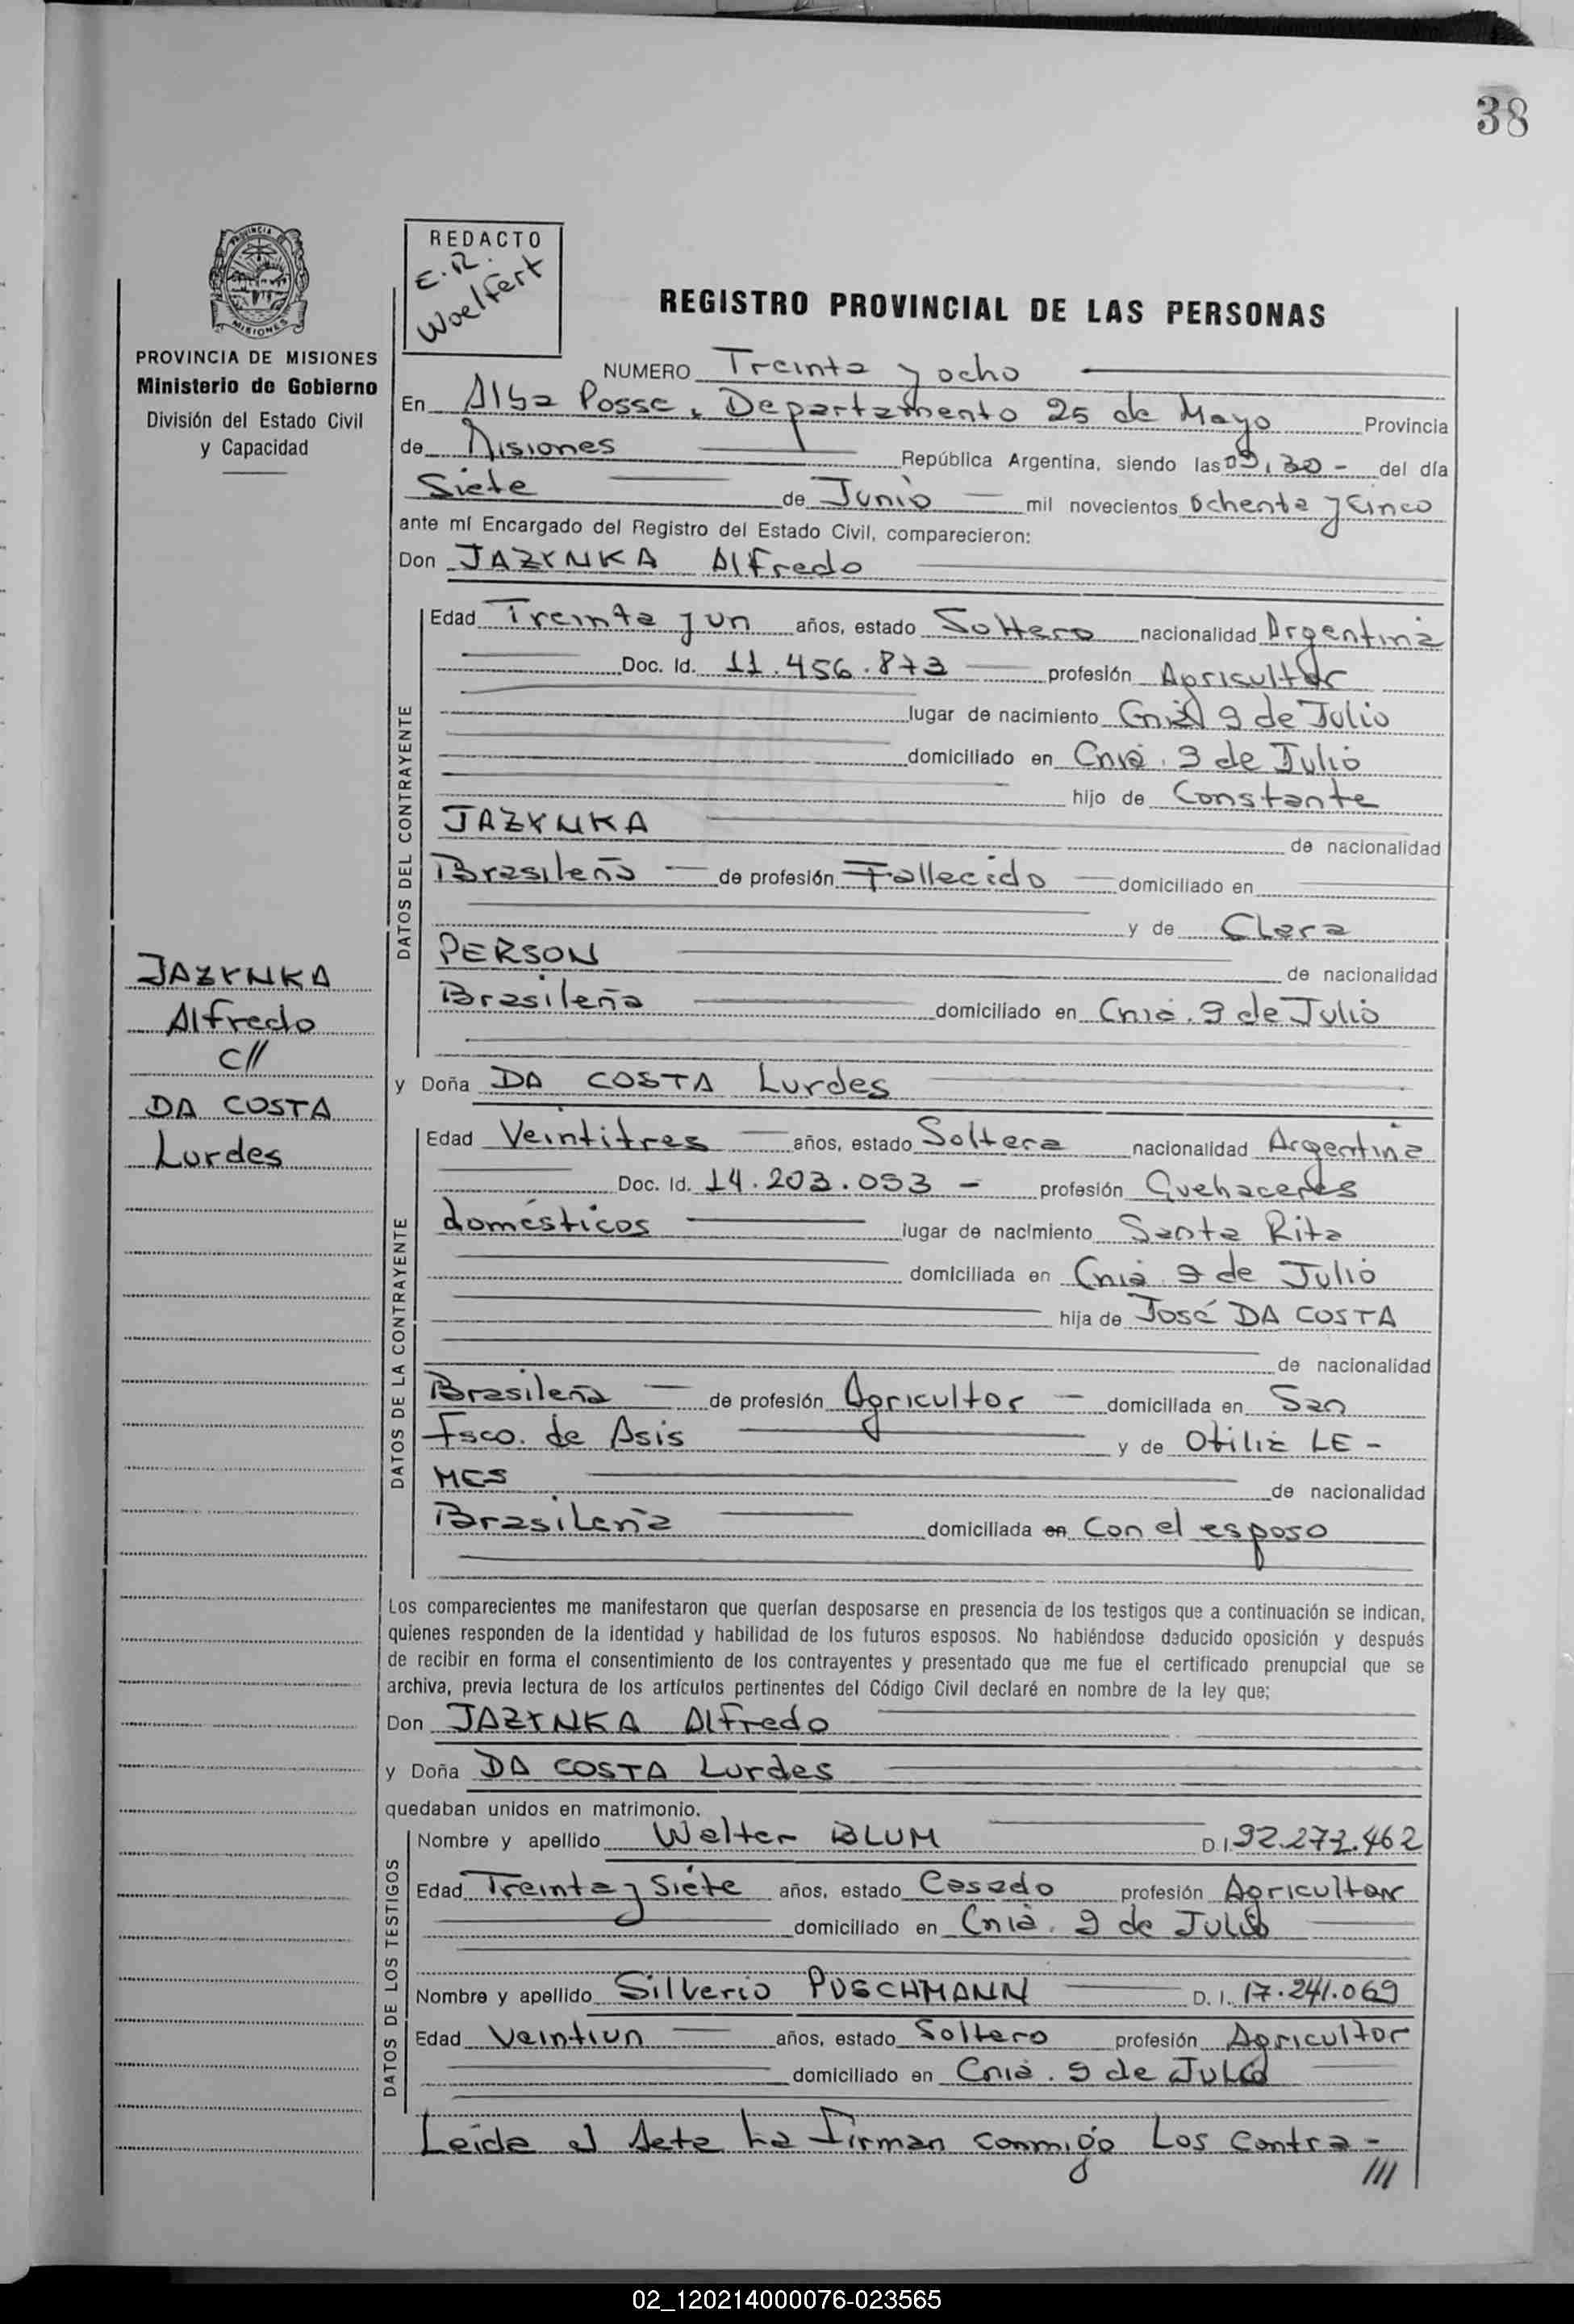 38
PROVINCIA DE MISIONES
PROVINCIA DE MISIONES
Ministerio de Gobierno
División del Estado Civil
y Capacidad
REDACTO
E.R.
Woelfert
REGISTRO PROVINCIAL DE LAS PERSONAS
NUMERO Treinta y ocho
En Alba Posse, Departamento 25 de Mayo Provincia
de Misiones República Argentina, siendo las 09,30 - del día
Siete de Junio mil novecientos Ochenta y Cinco
ante mí Encargado del Registro del Estado Civil, comparecieron:
Don JAZYNKA Alfredo
DATOS DEL CONTRAYENTE
Edad Treinta y un años, estado Soltero nacionalidad Argentina
Doc. Id. 11.456.873 profesión Agricultor
lugar de nacimiento Cnia 9 de Julio
domiciliado en Cnia. 9 de Julio
hijo de Constante
JAZYNKA de nacionalidad
Brasileño de profesión Fallecido domiciliado en
y de Clara
PERSON de nacionalidad
Brasileña domiciliado en Cnia. 9 de Julio
JAZYNKA
Alfredo
c//
DA COSTA
Lurdes
y Doña DA COSTA Lurdes
DATOS DE LA CONTRAYENTE
Edad Veintitres años, estado Soltera nacionalidad Argentina
Doc. Id. 14.203.053 - profesión Quehaceres
domésticos lugar de nacimiento Santa Rita
domiciliada en Cnia 9 de Julio
hija de José DA COSTA
de nacionalidad
Brasileña de profesión Agricultor domiciliada en San
Fsco. de Asis y de Otilia LE-
MES de nacionalidad
Brasileña domiciliada en Con el esposo
Los comparecientes me manifestaron que querían desposarse en presencia de los testigos que a continuación se indican,
quienes responden de la identidad y habilidad de los futuros esposos. No habiéndose deducido oposición y después
de recibir en forma el consentimiento de los contrayentes y presentado que me fue el certificado prenupcial que se
archiva, previa lectura de los artículos pertinentes del Código Civil declaré en nombre de la ley que;
Don JAZYNKA Alfredo
y Doña DA COSTA Lurdes
quedaban unidos en matrimonio.
DATOS DE LOS TESTIGOS
Nombre y apellido Walter BLUM D.I. 92.277.462
Edad Treinta y Siete años, estado Casado profesión Agricultor
domiciliado en Cnia. 9 de Julio
Nombre y apellido Silverio PUSCHMANN D. I. 17.241.069
Edad Veintiun años, estado Soltero profesión Agricultor
domiciliado en Cnia. 9 de Julio
Leida el Acta La Firman conmigo Los Contra-
///
02_120214000076-023565